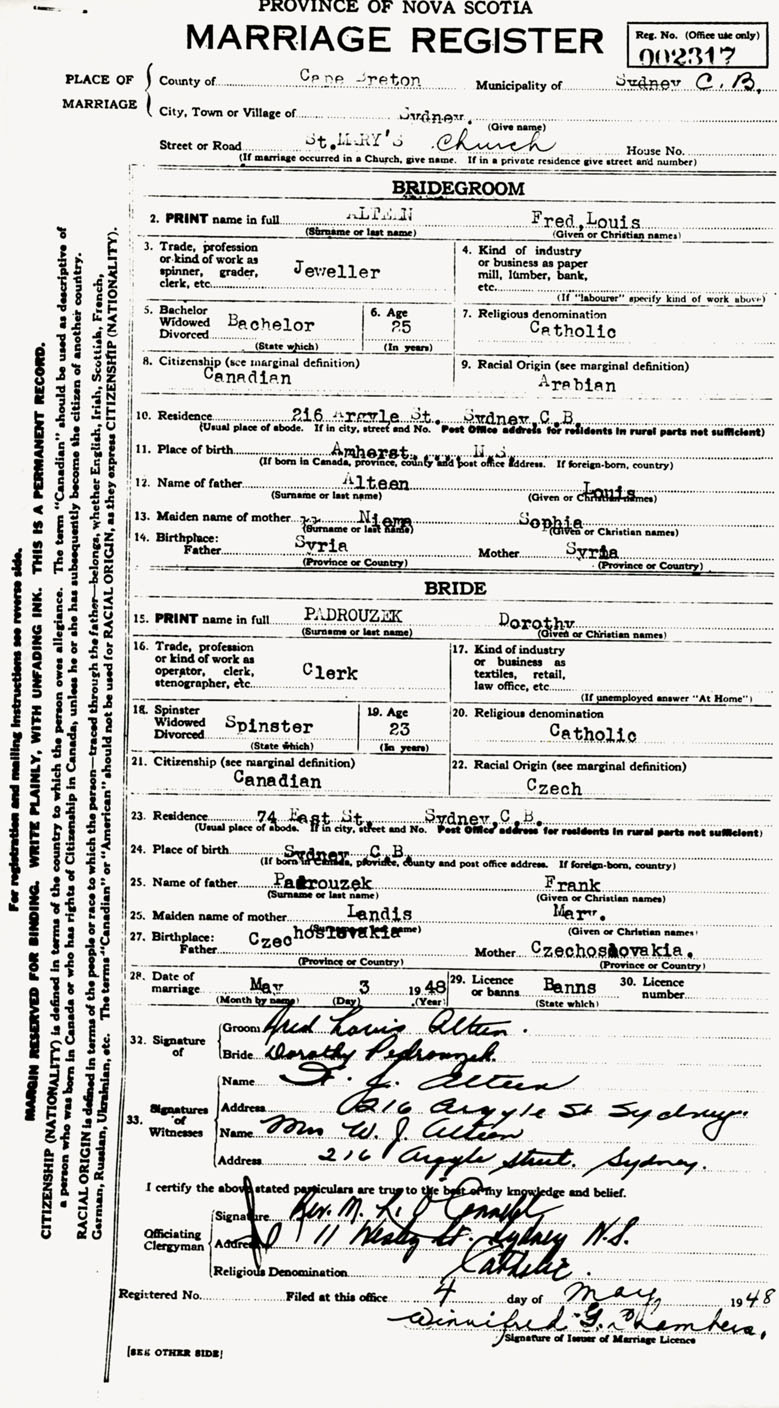 PROVINCE OF NOVA SCOTIA
MARRIAGE REGISTER
Reg. No. (Office use only)
002317
PLACE OF MARRIAGE
County of Cape Breton Municipality of Sydney C.B.
City, Town or Village of Sydney.
(Give name)
Street or Road St.MARY'S Church House No.
(If marriage occurred in a Church, give name. If in a private residence give street and number)
BRIDEGROOM
2. PRINT name in full ALTEEN Fred,Louis
(Surname or last name) (Given or Christian names)
3. Trade, profession or kind of work as spinner, grader, clerk, etc. Jeweller
4. Kind of industry or business as paper mill, lumber, bank, etc.
(If "labourer" specify kind of work above)
5. Bachelor Widowed Divorced Bachelor
(State which)
6. Age 25
(In years)
7. Religious denomination
Catholic
8. Citizenship (see marginal definition)
Canadian
9. Racial Origin (see marginal definition)
Arabian
10. Residence 216 Argyle St. Sydney,C.B.
(Usual place of abode. If in city, street and No. Post Office address for residents in rural parts not sufficient)
11. Place of birth Amherst, N.S.
(If born in Canada, province, county and post office address. If foreign-born, country)
12. Name of father Alteen Louis
(Surname or last name) (Given or Christian names)
13. Maiden name of mother Sophia
(Surname or last name) (Given or Christian names)
14. Birthplace:
Father Syria Mother Syria
(Province or Country) (Province or Country)
BRIDE
15. PRINT name in full PADROUZEK Dorothy
(Surname or last name) (Given or Christian names)
16. Trade, profession or kind of work as operator, clerk, stenographer, etc. Clerk
17. Kind of industry or business as textiles, retail, law office, etc.
(If unemployed answer "At Home")
18. Spinster Widowed Divorced Spinster
(State which)
19. Age 23
(In years)
20. Religious denomination
Catholic
21. Citizenship (see marginal definition)
Canadian
22. Racial Origin (see marginal definition)
Czech
23. Residence 74 East St. Sydney,C.B.
(Usual place of abode. If in city, street and No. Post Office address for residents in rural parts not sufficient)
24. Place of birth Sydney C.B.
(If born in Canada, province, county and post office address. If foreign-born, country)
25. Name of father Padrouzek Frank
(Surname or last name) (Given or Christian names)
25. Maiden name of mother Landis Mary.
(Surname or last name) (Given or Christian names)
27. Birthplace:
Father Czechoslovakia Mother Czechoslovakia.
(Province or Country) (Province or Country)
28. Date of marriage May 3 1948
(Month by name) (Day) (Year)
29. Licence or banns Banns
(State which)
30. Licence number
32. Signature of
Groom Fred Louis Alteen.
Bride Dorothy Pedrouzek
33. Signatures of Witnesses
Name J. Alteen
Address 216 Argyle St Sydney
Name Mrs W. J. Alteen
Address 216 Argyle Street. Sydney.
I certify the above stated particulars are true to the best of my knowledge and belief.
Officiating Clergyman
Signature Rev. M.
Address 11 St. Sydney N.S.
Religious Denomination Catholic.
Registered No. Filed at this office 4 day of May, 1948
Winnifred G. Chambers.
Signature of Issuer of Marriage Licence
[SEE OTHER SIDE]
For registration and mailing instructions see reverse side.
MARGIN RESERVED FOR BINDING. WRITE PLAINLY, WITH UNFADING INK. THIS IS A PERMANENT RECORD.
CITIZENSHIP (NATIONALITY) is defined in terms of the country to which the person owes allegiance. The term "Canadian" should be used as descriptive of
a person who was born in Canada or who has rights of Citizenship in Canada, unless he or she has subsequently become the citizen of another country.
RACIAL ORIGIN is defined in terms of the people or race to which the person—traced through the father—belongs, whether English, Irish, Scottish, French,
German, Russian, Ukrainian, etc. The terms "Canadian" or "American" should not be used for RACIAL ORIGIN, as they express CITIZENSHIP (NATIONALITY).